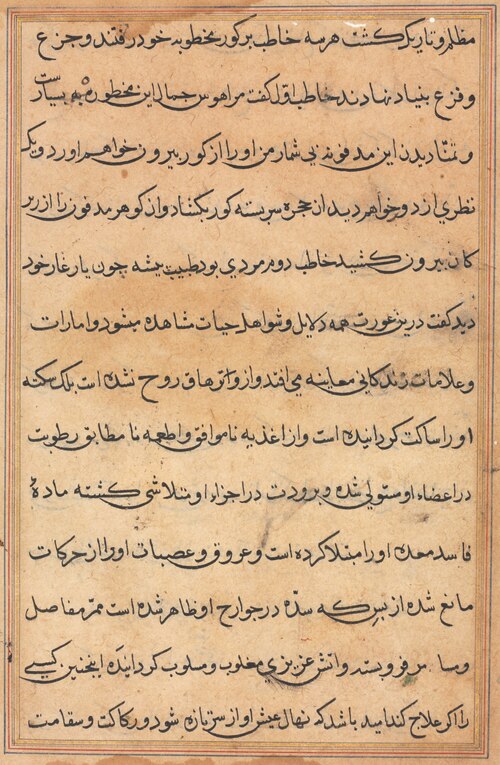 مظلم و تاریک کشت هر سه خاطب بر کور مخطوبه خود رفتند و جزع
و فزع بنیاد نهادند خاطب اول کفت مرا هوس جمال این مخطوبه بسیارست
و تمنا دیدن این مدفونه بی شمار من او را از کور بیرون خواهم اورد و یک
نظری از دور خواهم دید از حجره سربسته کور بکشاد و ان کوهر مدفون را از زیر
کان بیرون کشید خاطب دوم مردی بود طبیب پیشه چون یار غار خود
دید کفت درین عورت همه دلایل و شواهد حیات مشاهده میشود و امارات
و علامات زندکانی معاینه می افتد و از وی ازهاق روح نشده است بلک سکته
او را ساکت کردانیده است و از اغذیه ناموافق و اطعمه نا مطابق رطوبت
در اعضاء او مستولی شده و برودت در اجزاء او متلاشی کشته مادهٔ
فاسد معده او را مبتلا کرده است و عروق و عصبات او را از حرکات
مانع شده از بس که سده در جوارح او ظاهر شده است ممر مفاصل
فروبسته و اتش عزیزی مغلوب و مسلوب کردانیده اینچنین کسی
را اکر علاج کنند امید باشد که نهال عیش او از سر تازه شود و رکاکت و سقامت